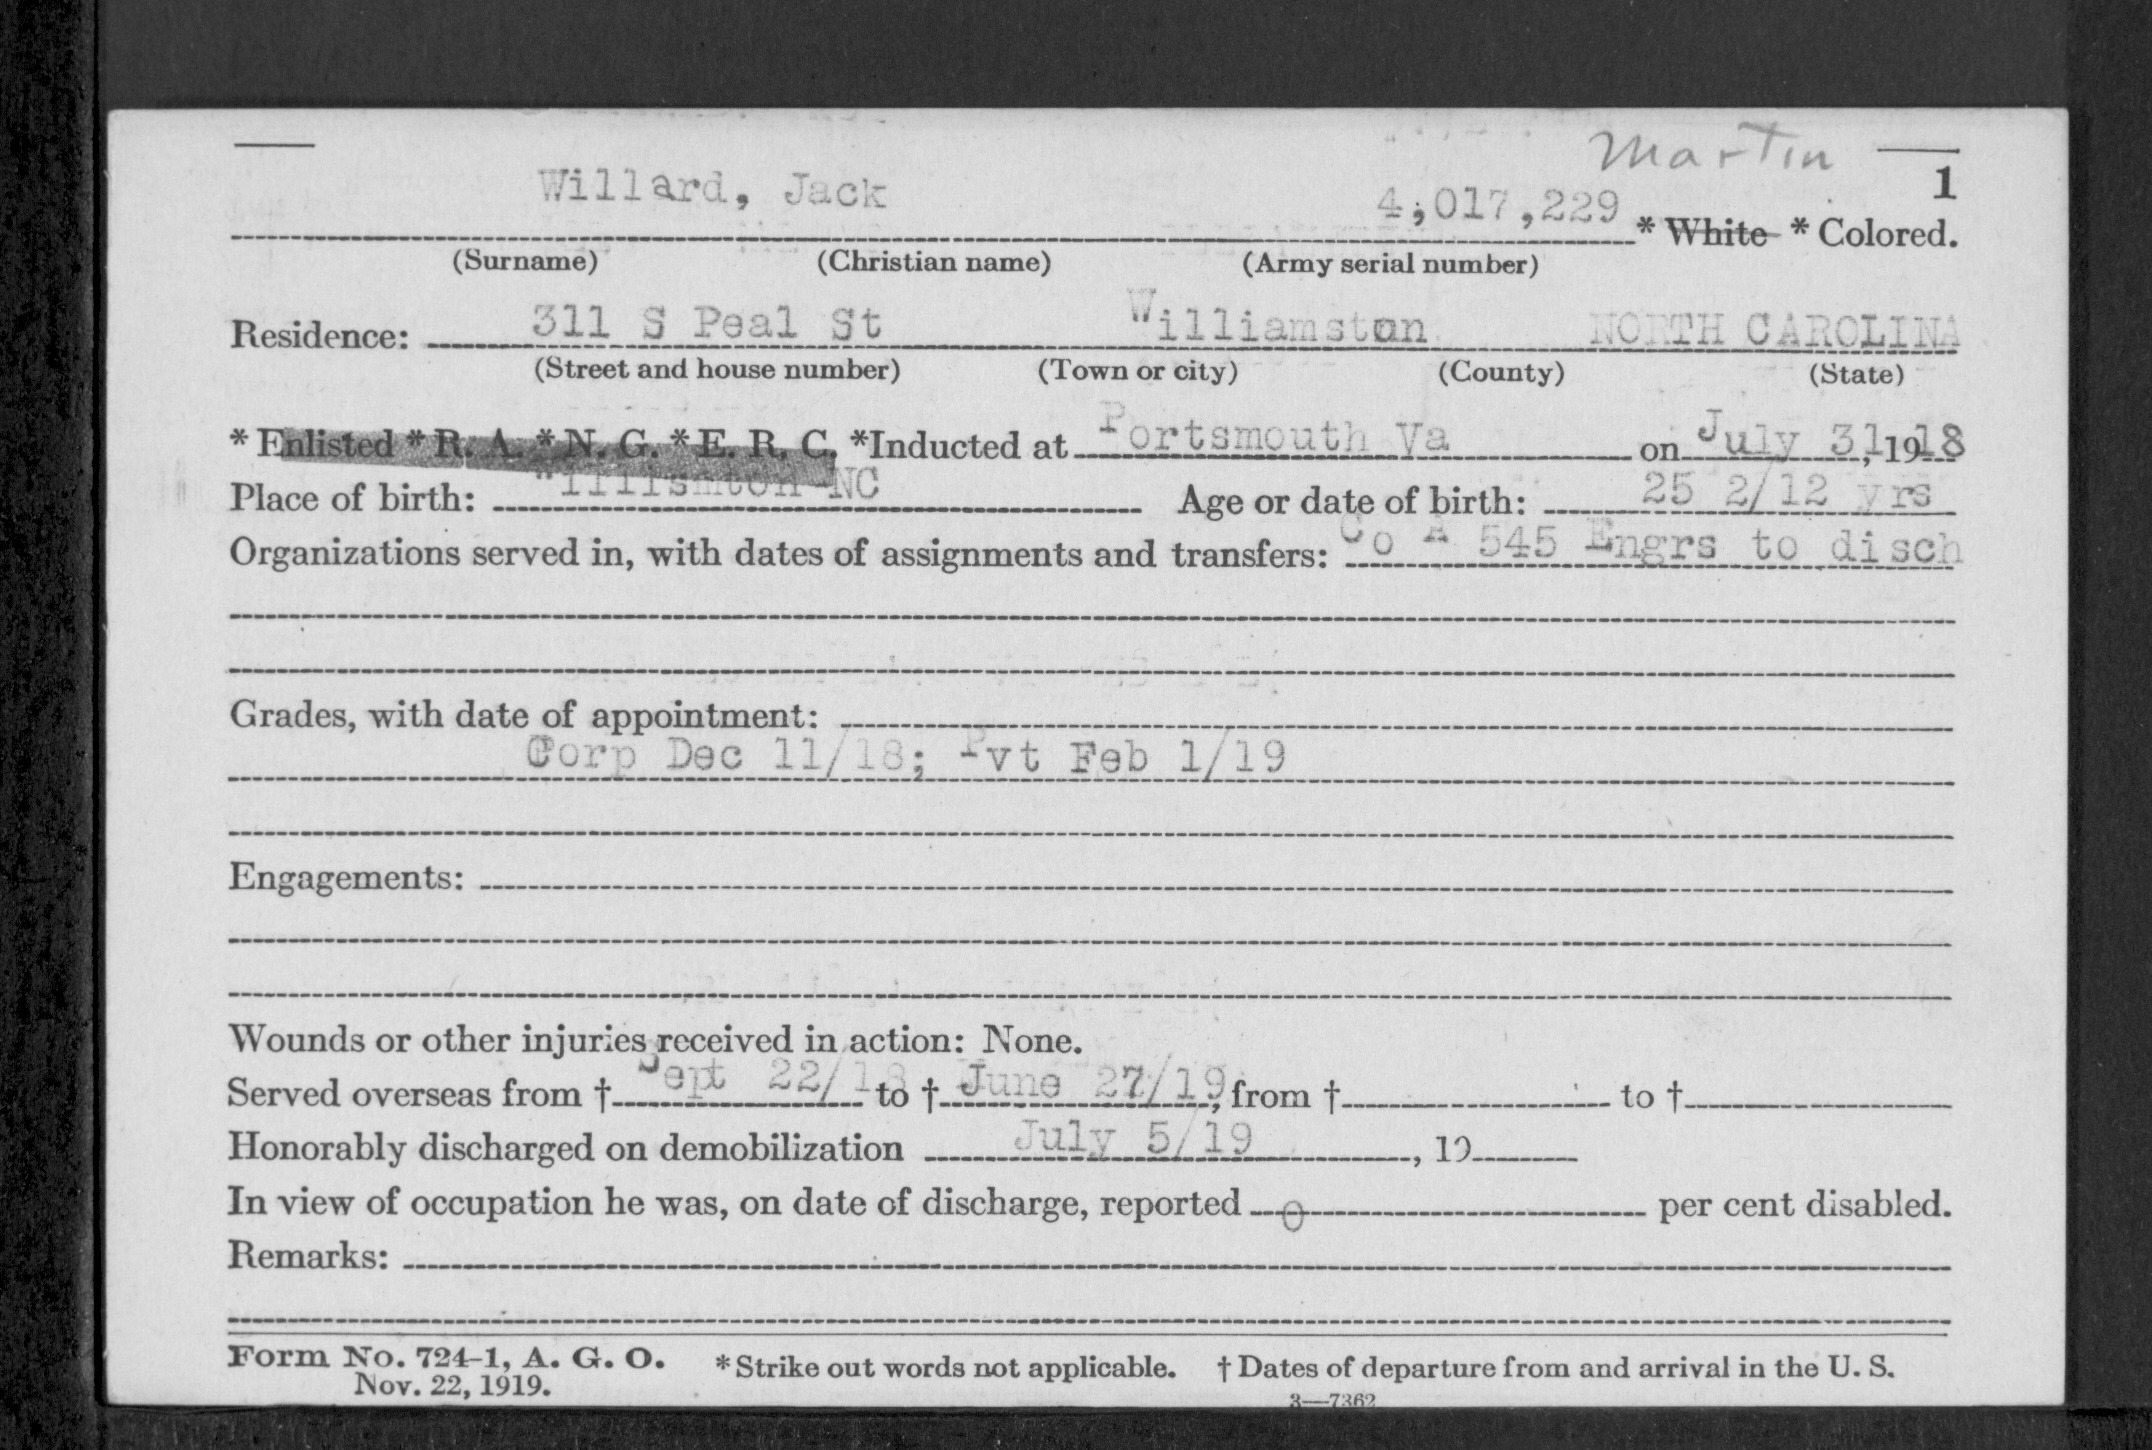 Martin
Willard, Jack 4,017,229 * White * Colored. 1
(Surname) (Christian name) (Army serial number)
Residence: 311 S Peal St Williamston NORTH CAROLINA
(Street and house number) (Town or city) (County) (State)
* Enlisted * R. A. * N. G. * E. R. C. *Inducted at Portsmouth Va on July 31, 1918
Place of birth: Willismton NC Age or date of birth: 25 2/12 yrs
Organizations served in, with dates of assignments and transfers: Co A 545 Engrs to disch
Grades, with date of appointment:
Corp Dec 11/18; Pvt Feb 1/19
Engagements:
Wounds or other injuries received in action: None.
Served overseas from † Sept 22/18 to † June 27/19, from † to †
Honorably discharged on demobilization July 5/19, 19
In view of occupation he was, on date of discharge, reported 0 per cent disabled.
Remarks:
Form No. 724-1, A. G. O. * Strike out words not applicable. † Dates of departure from and arrival in the U. S.
Nov. 22, 1919. 3—7362